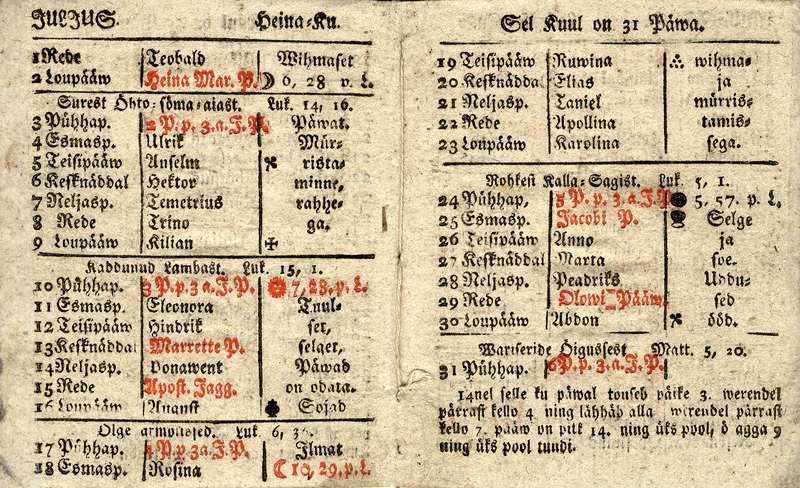 JULJUS. Heina-Ku.
1 Rede Teobald Wihmaset
2 Loupääw Heina Mar. P. ☽ 6, 28 p. L.
Surest Öhto-söma-aiast. Luk. 14, 16.
3 Pühhap. 2 P. p. 3. a. J. P. Päwat.
4 Esmasp. Ulrik Mür-
5 Teisipääw Anselm rista-
6 Kesknäddal Hektor minne,
7 Neljasp. Temetrius rahhe-
8 Rede Trino ga.
9 Loupääw Kilian ✠
Kaddunud Lambast. Luk. 15, 1.
10 Pühhap. 3 P. p. 3 a. J. P. 7, 28. p. L.
11 Esmasp. Eleonora Tuul-
12 Teisipääw Hindrik set,
13 Kesknäddal Marrette P. selget,
14 Neljasp. Ponawent Päwad
15 Rede Apost. Jagg. on odata.
16 Loupääw Auaust ♣ Sojad
Olge armolised. Luk. 6, 36.
17 Pühhap. 4 P. p 3 a. J. P. Jlmat
18 Esmasp. Rosina ☾ 10, 29. p. L.
Sel Kuul on 31 Päwa.
19 Teisipääw Ruwina ∴ wihma-
20 Kesknäddal Elias ja
21 Neljasp. Taniel mürris-
22 Rede Apollina tamis-
23 Loupääw Karolina sega.
Rohkest Kalla-Sagist. Luk. 5, 1.
24 Pühhap, 5 P. p. 3. a. J. P ● 5, 57. p. L.
25 Esmasp. Jacobi P. Selge
26 Teisipääw Anno ja
27 Kesknäddal Marta soe.
28 Neljasp. Peadriks Uddu-
29 Rede Olowi Pääw. sed
30 Loupääw Abdon ööd.
Wariseride Öigussest Matt. 5, 20.
31 Pühhap. 6 P. p. 3. a. J. P.
14nel selle ku päwal touseb päike 3. werendel
pärrast kello 4 ning lähhäb alla werendel pärrast
kello 7. pääw on pitk 14. ning üks pool, ö agga 9
ning üks pool tundi.